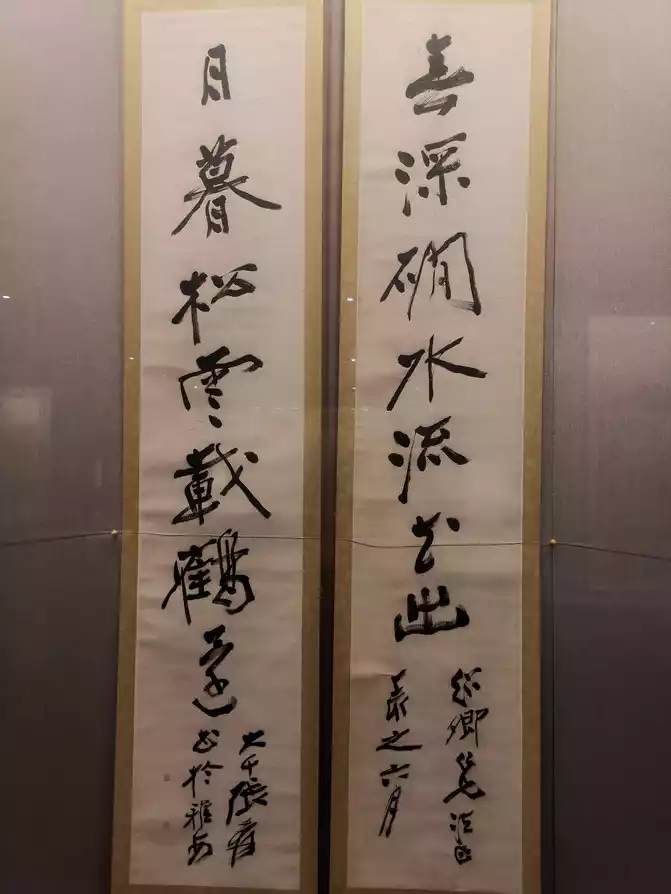 春深磵水流花出
卿法正
之六月
日暮松雲載鶴還
大千張爰
書於雅安